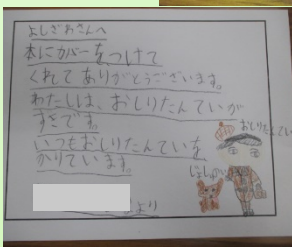 よしざわさんへ
本にカバーをつけて
くれてありがとうございます。
わたしは、おしりたんていが
すきです。
いつもおしりたんていを
かりています。
より
おしりたんてい